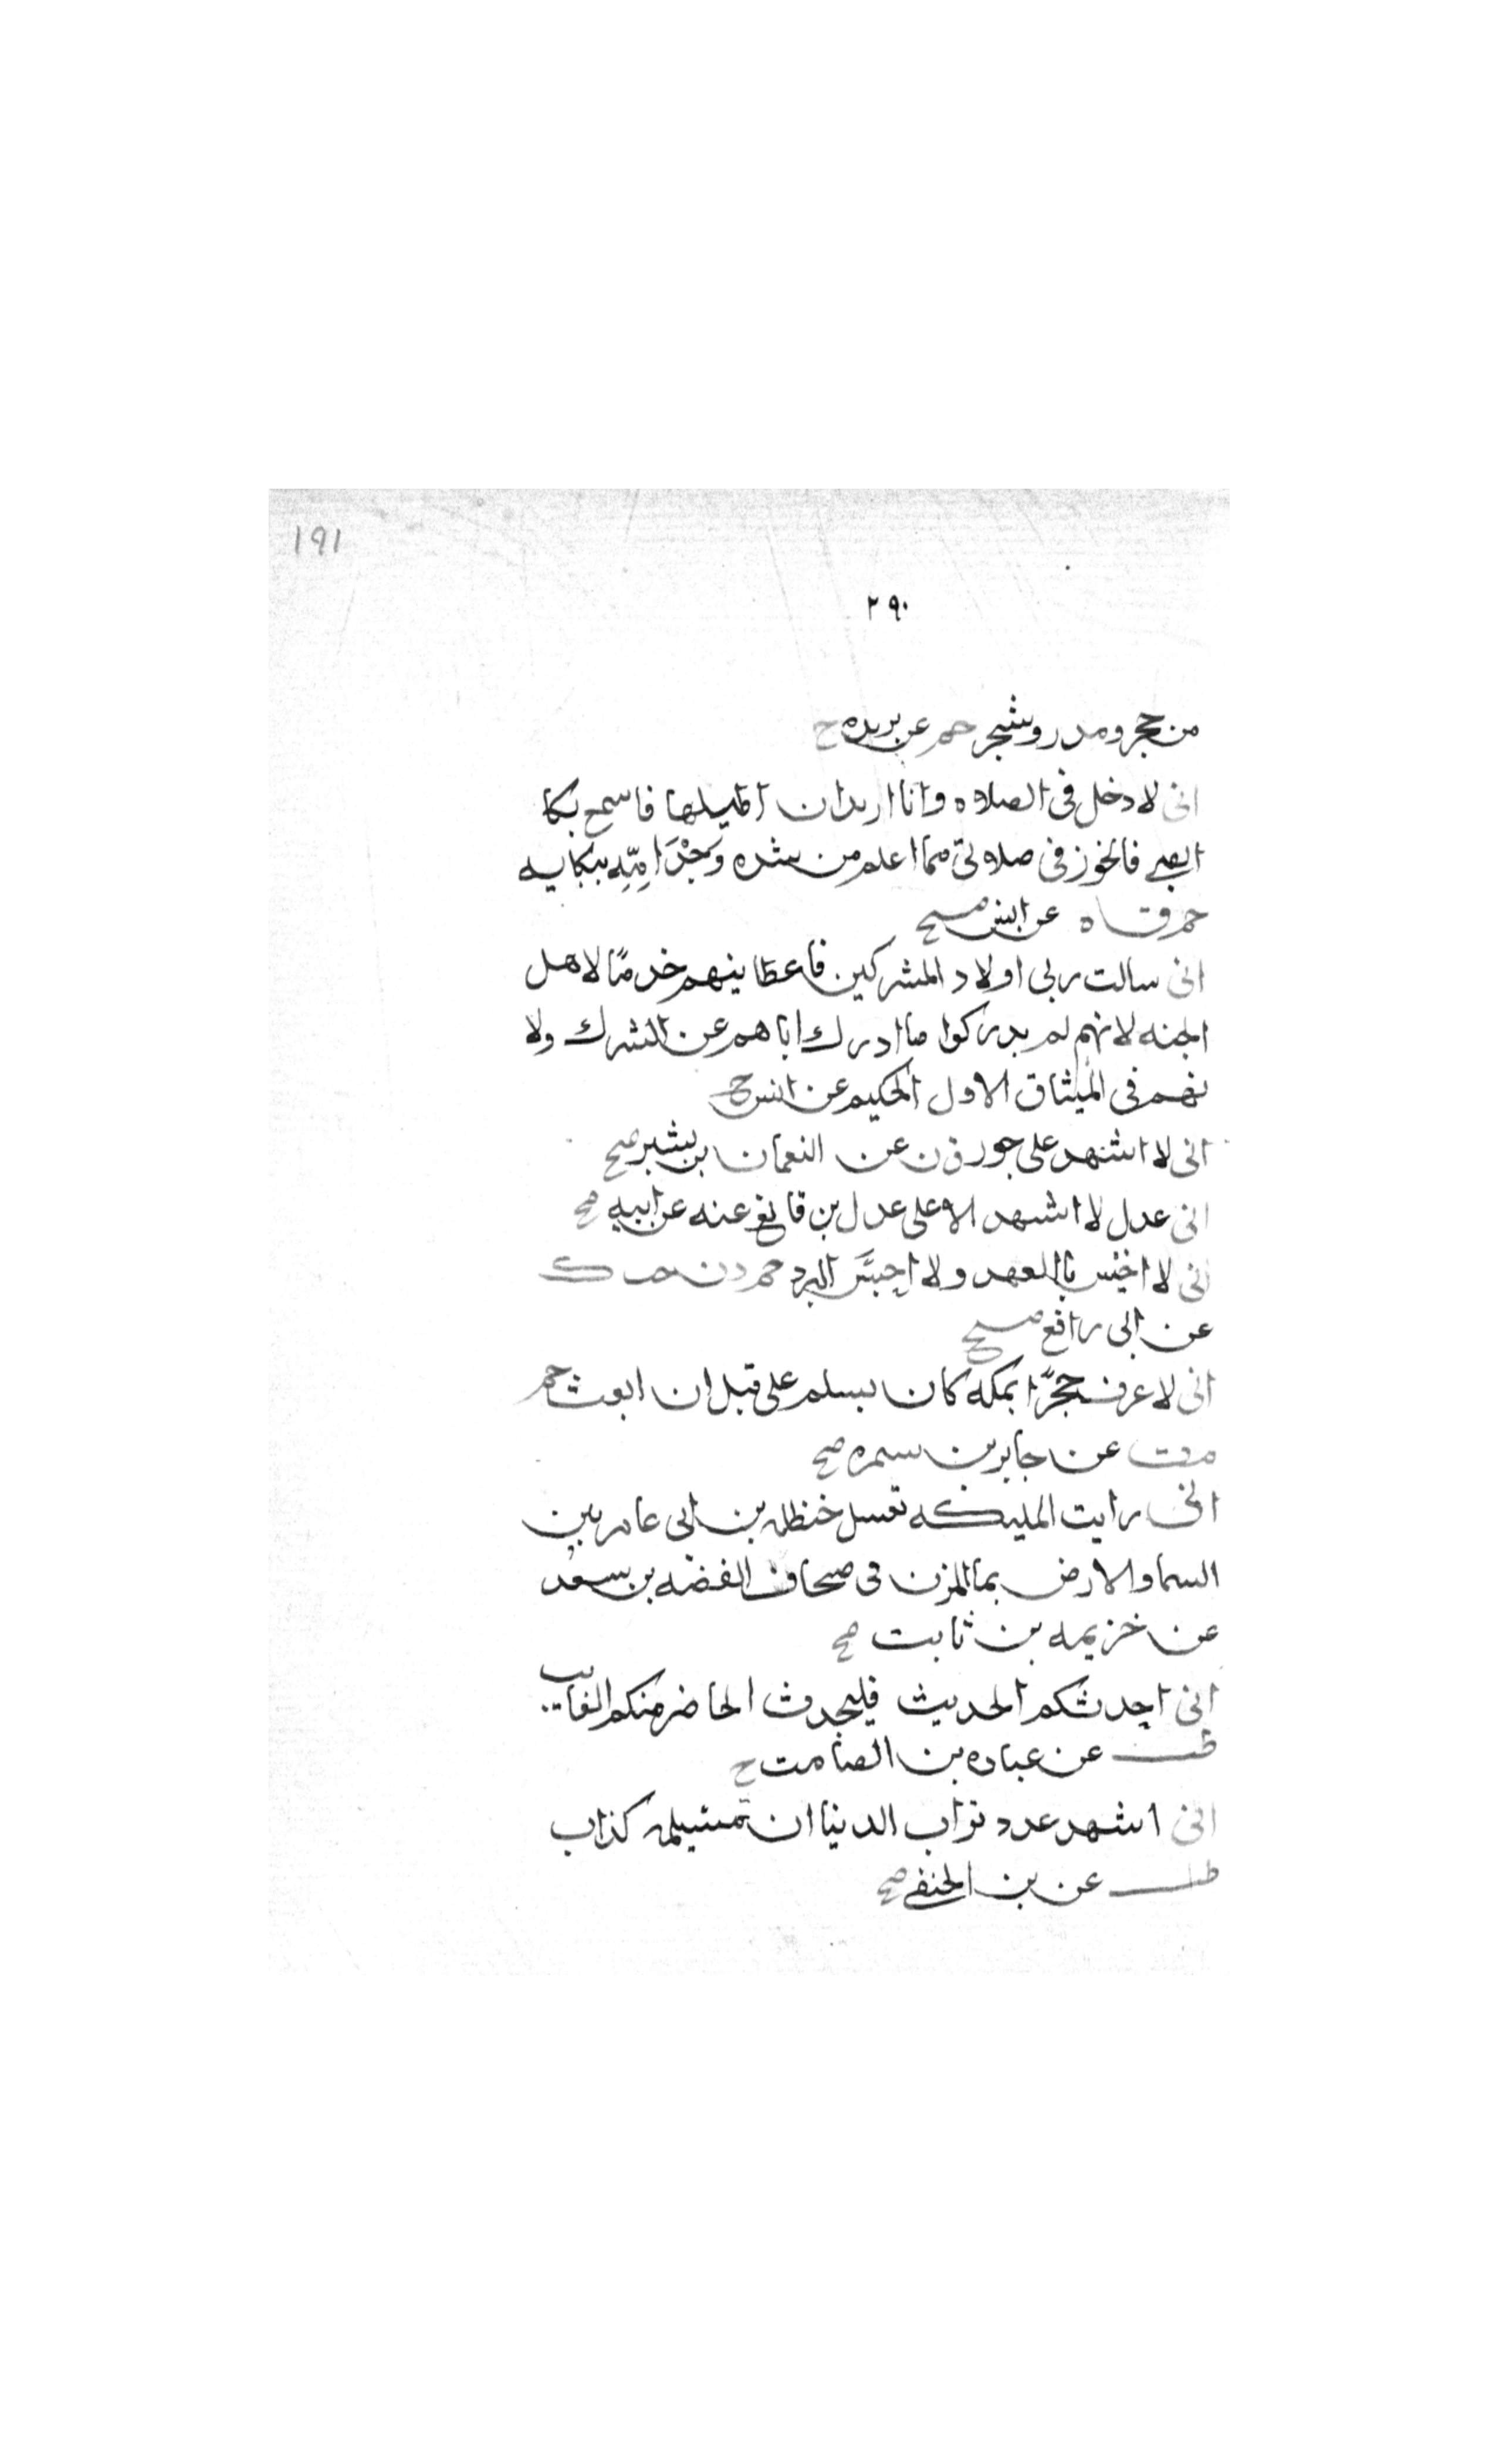 191
٢٩٠
من حجر ومدر وشجر حم عن بريده ح
انى لا دخل فى الصلاه وانا اريد ان اطيلها فاسمع بكا
الصبى فاتجوز فى صلاتى مما اعلم من شده وَجْدَ امِّهِ ببكايه
حم ق ه عن انس صح
انى سالت ربى اولاد المشركين فاعطا ينهم خدمًا لاهل
الجنه لانهم لم يدركوا ما ادرك اباهم عن الشرك ولا
نهم فى الميثاق الاول الحكيم عن انس ح
انى لا اشهد على جور ق ن عن النعمان بن بشير صح
انى عدل لا اشهد الا على عدل بن قانع عنه عن ابيه صح
انى لا اخيس بالعهد ولا احبس البرد حم د ن حب ك
عن ابى رافع صح
انى لا عرف حجرًا بمكه كان يسلم على قبل ان ابعث حم
م ت عن جابر بن سمره صح
انى رايت المليكه تغسل حنظله بن ابى عامر بين
السما والارض بما المزن فى صحاف الفضه بن سعد
عن خزيمه بن ثابت صح
انى احدثكم الحديث فليحدث الحاضر منكم الغايب
طب عن عباده بن الصامت ح
انى اشهد عدد تراب الدنيا ان مسيلمه كذاب
طب عن بن الحنفى صح